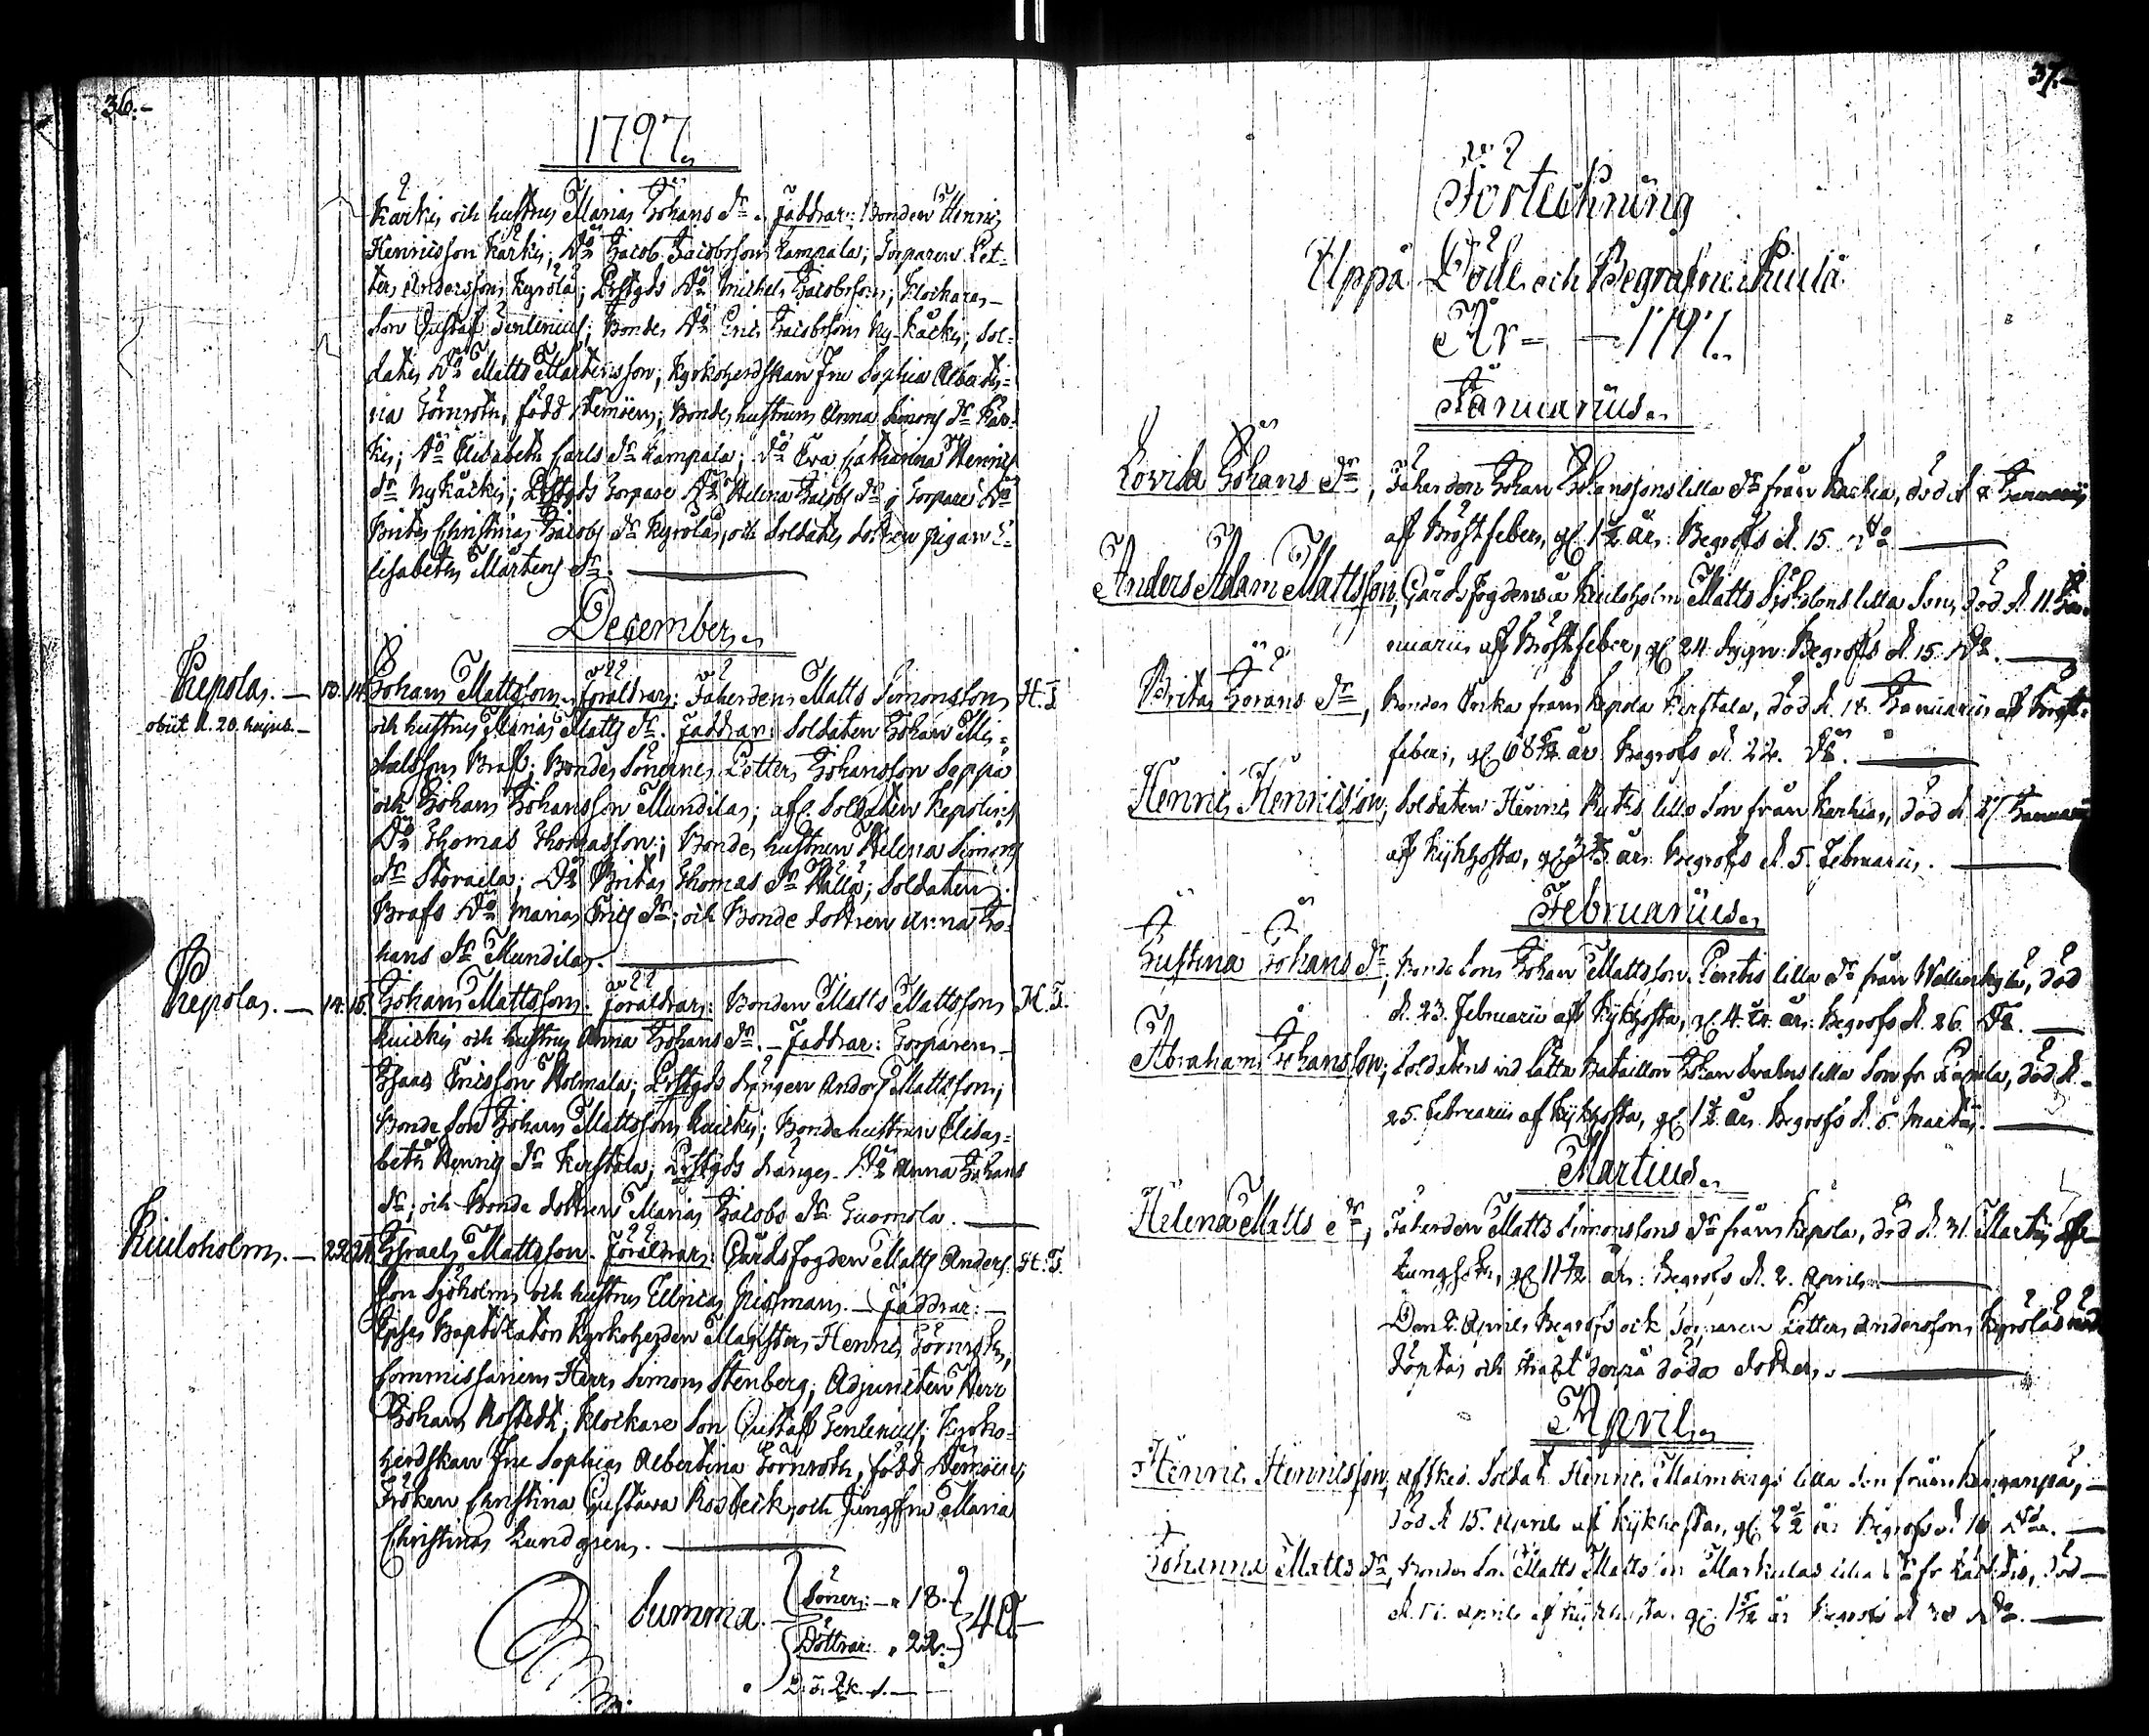 36.-
1797.
Kärki och hustrus Maria Johans Dr. Faddrar: Bonden Henric
Henricsson Kärki; Do Jacob Jacobsson Kampala; Torparen Pet-
ter Andersson Kyrölä; Do Michel Jacobsson; Klockare-
Son Gustaf Genlenius; Bonde Do Eric Jacobsson Ny-Kärki; Sol-
date Do Matts Mårtensson; Kyrkoherdskan Fru Sophia Alberti-
na Törnroth, född Memoen; Bonde hustrun Anna Simons Dr Kär-
ki; Do Elisabeth Carls Dr Kampala; Do Eva Catharina Henrics
Dr Ny Kärki; Torpare Do Helena Jacobs Dr; Torpare Do
Brita Christina Jacobs Dr Kyrölä, och Soldate dottren pigan E-
lisabeth Mårtens Dr.
December.
Kepola. — 13. 14. Johan Mattsson. Föräldrar: Matts Simonsson H. T.
obiit d. 20. hujus. — och hustrus Maria Matts Dr. Faddrar: Soldaten Johan Mi-
chelsson Braf; Bonde Sönerne Petter Johansson Seppä
och Johan Johansson Mundila; afs. Soldaten Kepolin
Do Thomas Thomasson; Bonde hustrun Helena Simons
Dr Storaila; Do Brita Thomas Dr Wälla; Soldaten
Brafs Do Maria Erics Dr; och Bonde dottren Anna Jo-
hans Dr Mundila.
Kepola. — 14. 15. Johan Mattsson. Föräldrar: Bonden Matts Mattsson H. T.
Kuicki och hustrus Anna Johans Dr. — Faddrar: Torparen
Isaac Ericsson Holmala; drängen Anders Mattsson;
Bonde Son Johan Mattsson Kuicki; Bonde hustrun Elisa-
beth Henrics Dr Kerstala; dränges Do Anna Johans
Dr; och Bonde dottren Maria Jacobs Dr Tuomola.
Kiuloholm. — 22. 24. Israel Mattsson. Föräldrar: Gårdsfogden Matts Anders- H. T.
son Sjöholm och hustrus Ellrica Grismans. — Faddrar: —
Ipse Baptizator Kyrkoherden Magister Henric Törnroth,
Commissarien Herr Simon Stenberg; Adjuncten Herr
Johan Rostedt; Klockare Son Gustaf Genlenius; Kyrko-
herdskan Fru Sophia Albertina Törnroth, född Memoen;
Fröken Christina Gustava Rosbeck; och Jungfru Maria
Christina Lundgren.
Summa. Söner: — 18. 40
Döttrar: 22.
37.-
Förtechning
Uppå Döde och Begrafne i Kiula
År — 1797.
Januarius.
Lovisa Johans Dr, Johan Johanssons lilla Dr från Karhia, död d. Januarii
af Bröstfeber, gl. 1 1/2 år. Begrofs d. 15. Do
Anders Adam Mattsson, Gårds fogdens å Kiuloholm Matts Sjöholms lilla Son, död d. 11. Ja-
nuarii af Bröstfeber, gl. 24. dygn. Begrofs d. 15. Do.
Brita Jörans Dr, Bonde Enka från Kepola Kerstala, död d. 18. Januarii af Bröst-
feber, gl. 68 år. Begrofs d. 22. Do.
Henric Henricsson, Soldaten Henric lilla Son från Karhia, död d. 27 Januarii
af Kykhosta, gl. år. Begrofs d. 5. Februarii.
Februarius.
Gustina Johans Dr, Bonde Sons Johan Mattsson Penttis lilla Dr från Wallinkylä, död
d. 23. Februarii af Kykhosta, gl. 4. år. Begrofs d. 26. Do.
Abraham Johansson, Soldatens vid Lätta Bataillon Johan lilla Son fr. död d.
25. Februarii af Kykhosta, gl. 1 1/2 år. Begrofs d. 5. Martii.
Martius.
Helena Matts Dr, Matts Simonssons Dr från Kepola, död d. 31. Martii af
Lungsot, gl. 11 1/2 år. Begrofs d. 2. April.
Den 2. April Begrofs ock Torparen Petter Anderssons Kyrölä
döpta och strax derpå döda dotter.
April.
Henric Henricsson, afsked. Soldat. Henric Malmbergs lilla Son från Kanganpä,
död d. 15. April af Kykhosta, gl. 2 1/2 år Begrofs d. 16 Do.
Johanna Matts Dr, Bonde Son Matts Mattsson Markulas lilla Dr fr. död
d. April af Kykhosta. gl. år Begrofs d. 30 Do.